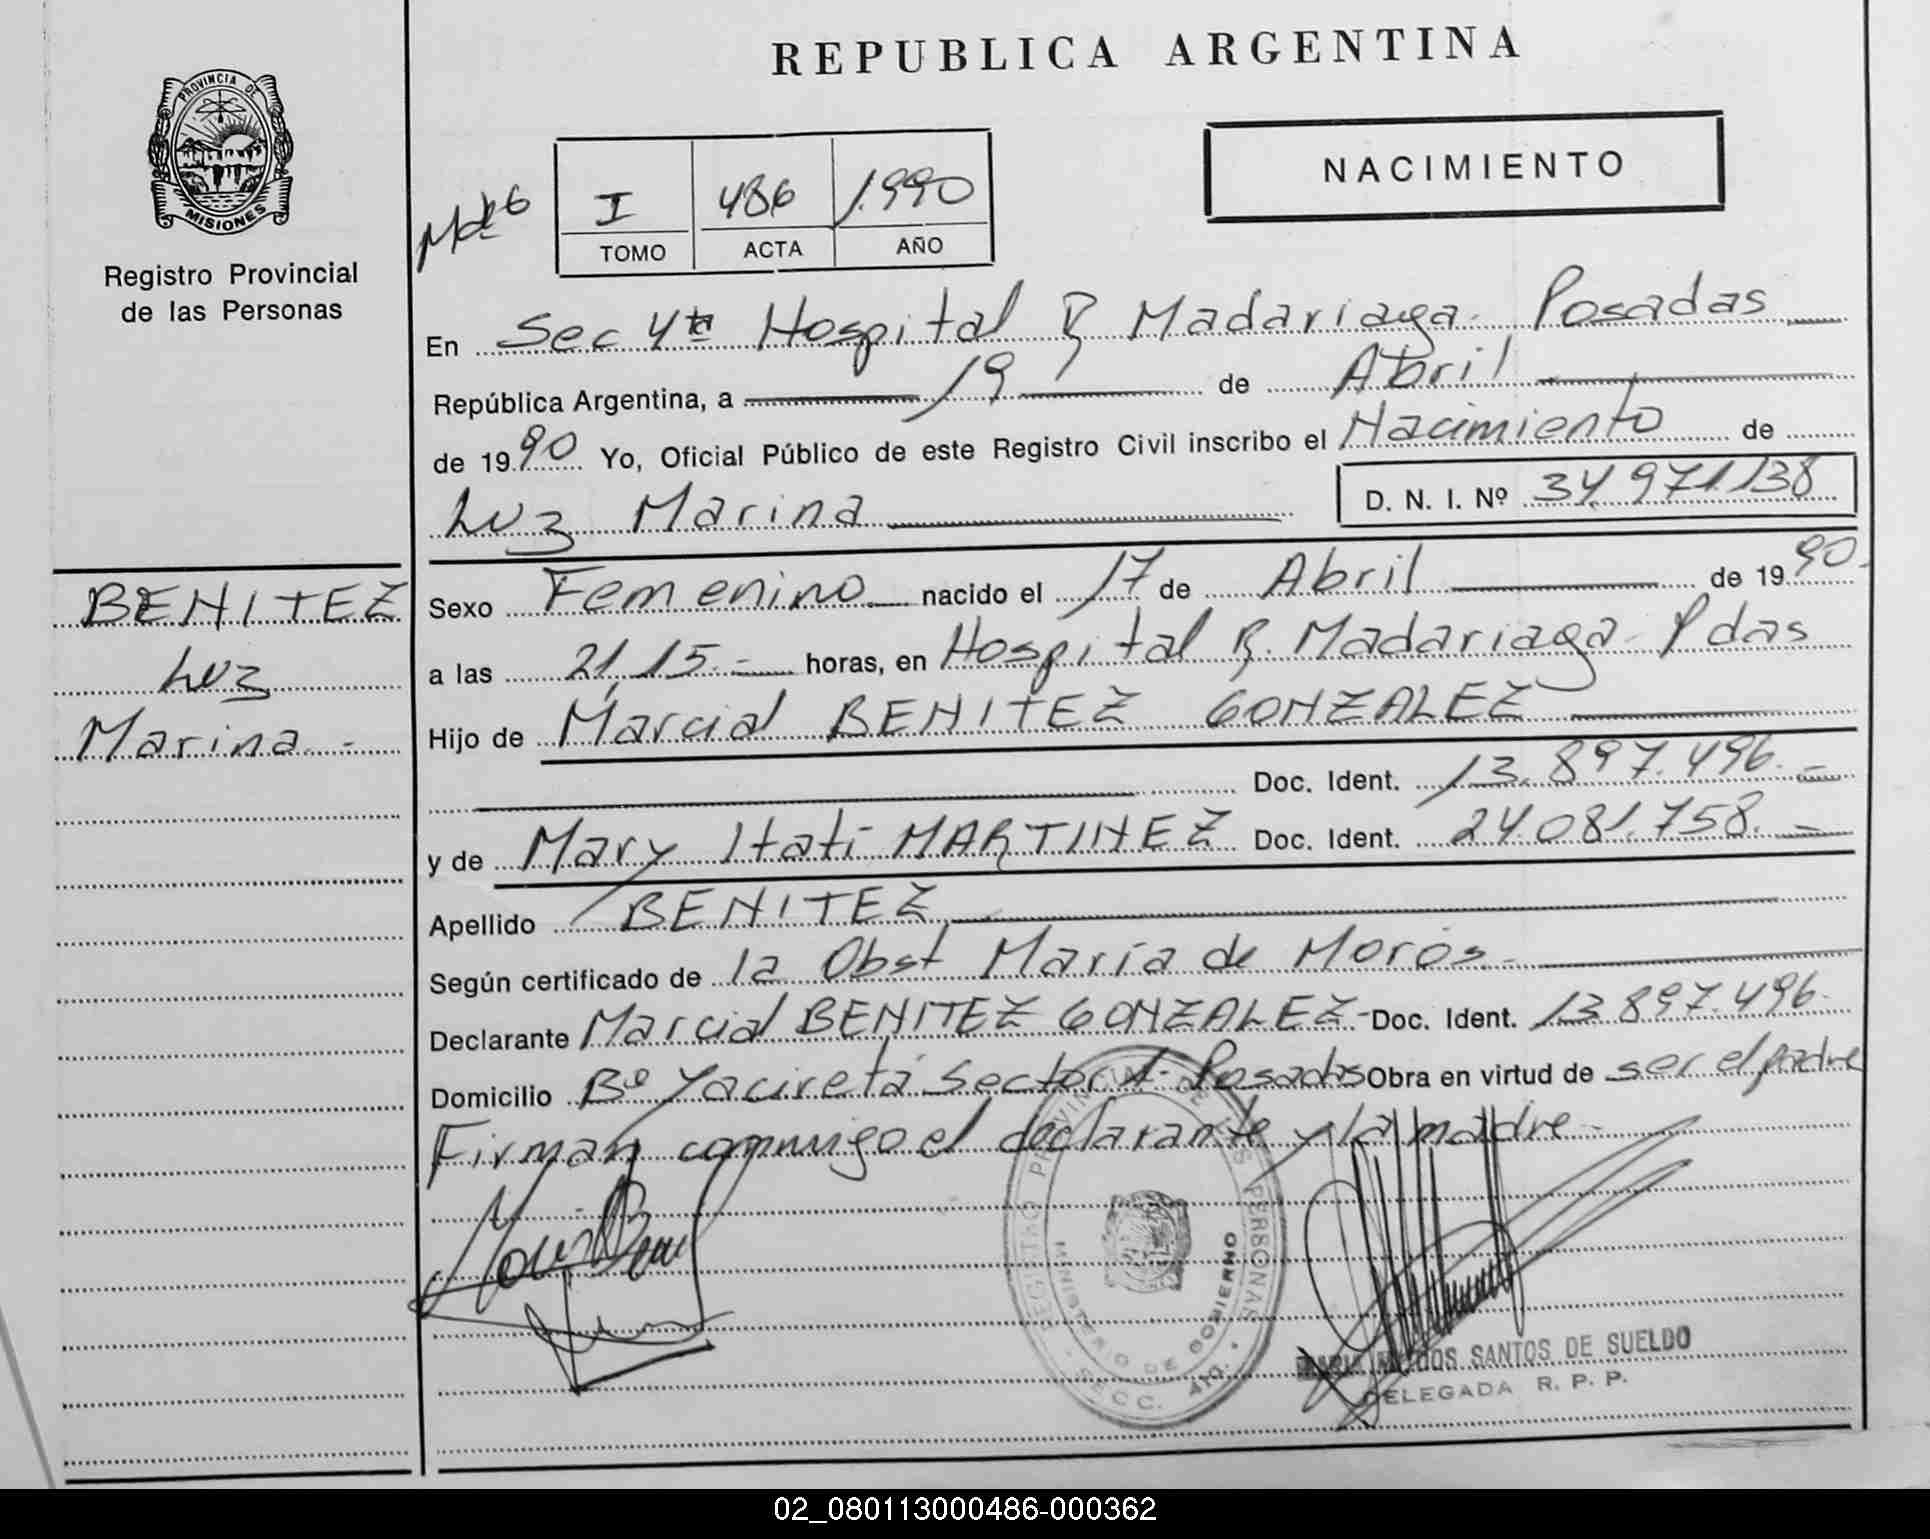 REPUBLICA ARGENTINA
PROVINCIA DE
MISIONES
Registro Provincial
de las Personas
NACIMIENTO
I 486 1.990
TOMO ACTA AÑO
En Sec 4ta Hospital R Madariaga - Posadas
República Argentina, a 19 de Abril
de 1990 Yo, Oficial Público de este Registro Civil inscribo el Nacimiento de
Luz Marina D. N. I. Nº 34.971.138
BENITEZ
Luz
Marina.-
Sexo Femenino nacido el 17 de Abril de 1990.
a las 21,15.- horas, en Hospital R. Madariaga - Pdas
Hijo de Marcial BENITEZ GONZALEZ
Doc. Ident. 13.897.496.-
y de Mary Itatí MARTINEZ Doc. Ident. 24.081.758.-
Apellido BENITEZ
Según certificado de la Obst María de Morós.-
Declarante Marcial BENITEZ GONZALEZ.- Doc. Ident. 13.897.496.-
Domicilio Bº Yaciretá Sector - Posadas Obra en virtud de ser el padre
Firman conmigo el declarante y la madre.-
REGISTRO PROVINCIAL DE LAS PERSONAS
MINISTERIO DE GOBIERNO
SECC. 4TO.
DOS SANTOS DE SUELDO
DELEGADA R. P. P.
02_080113000486-000362